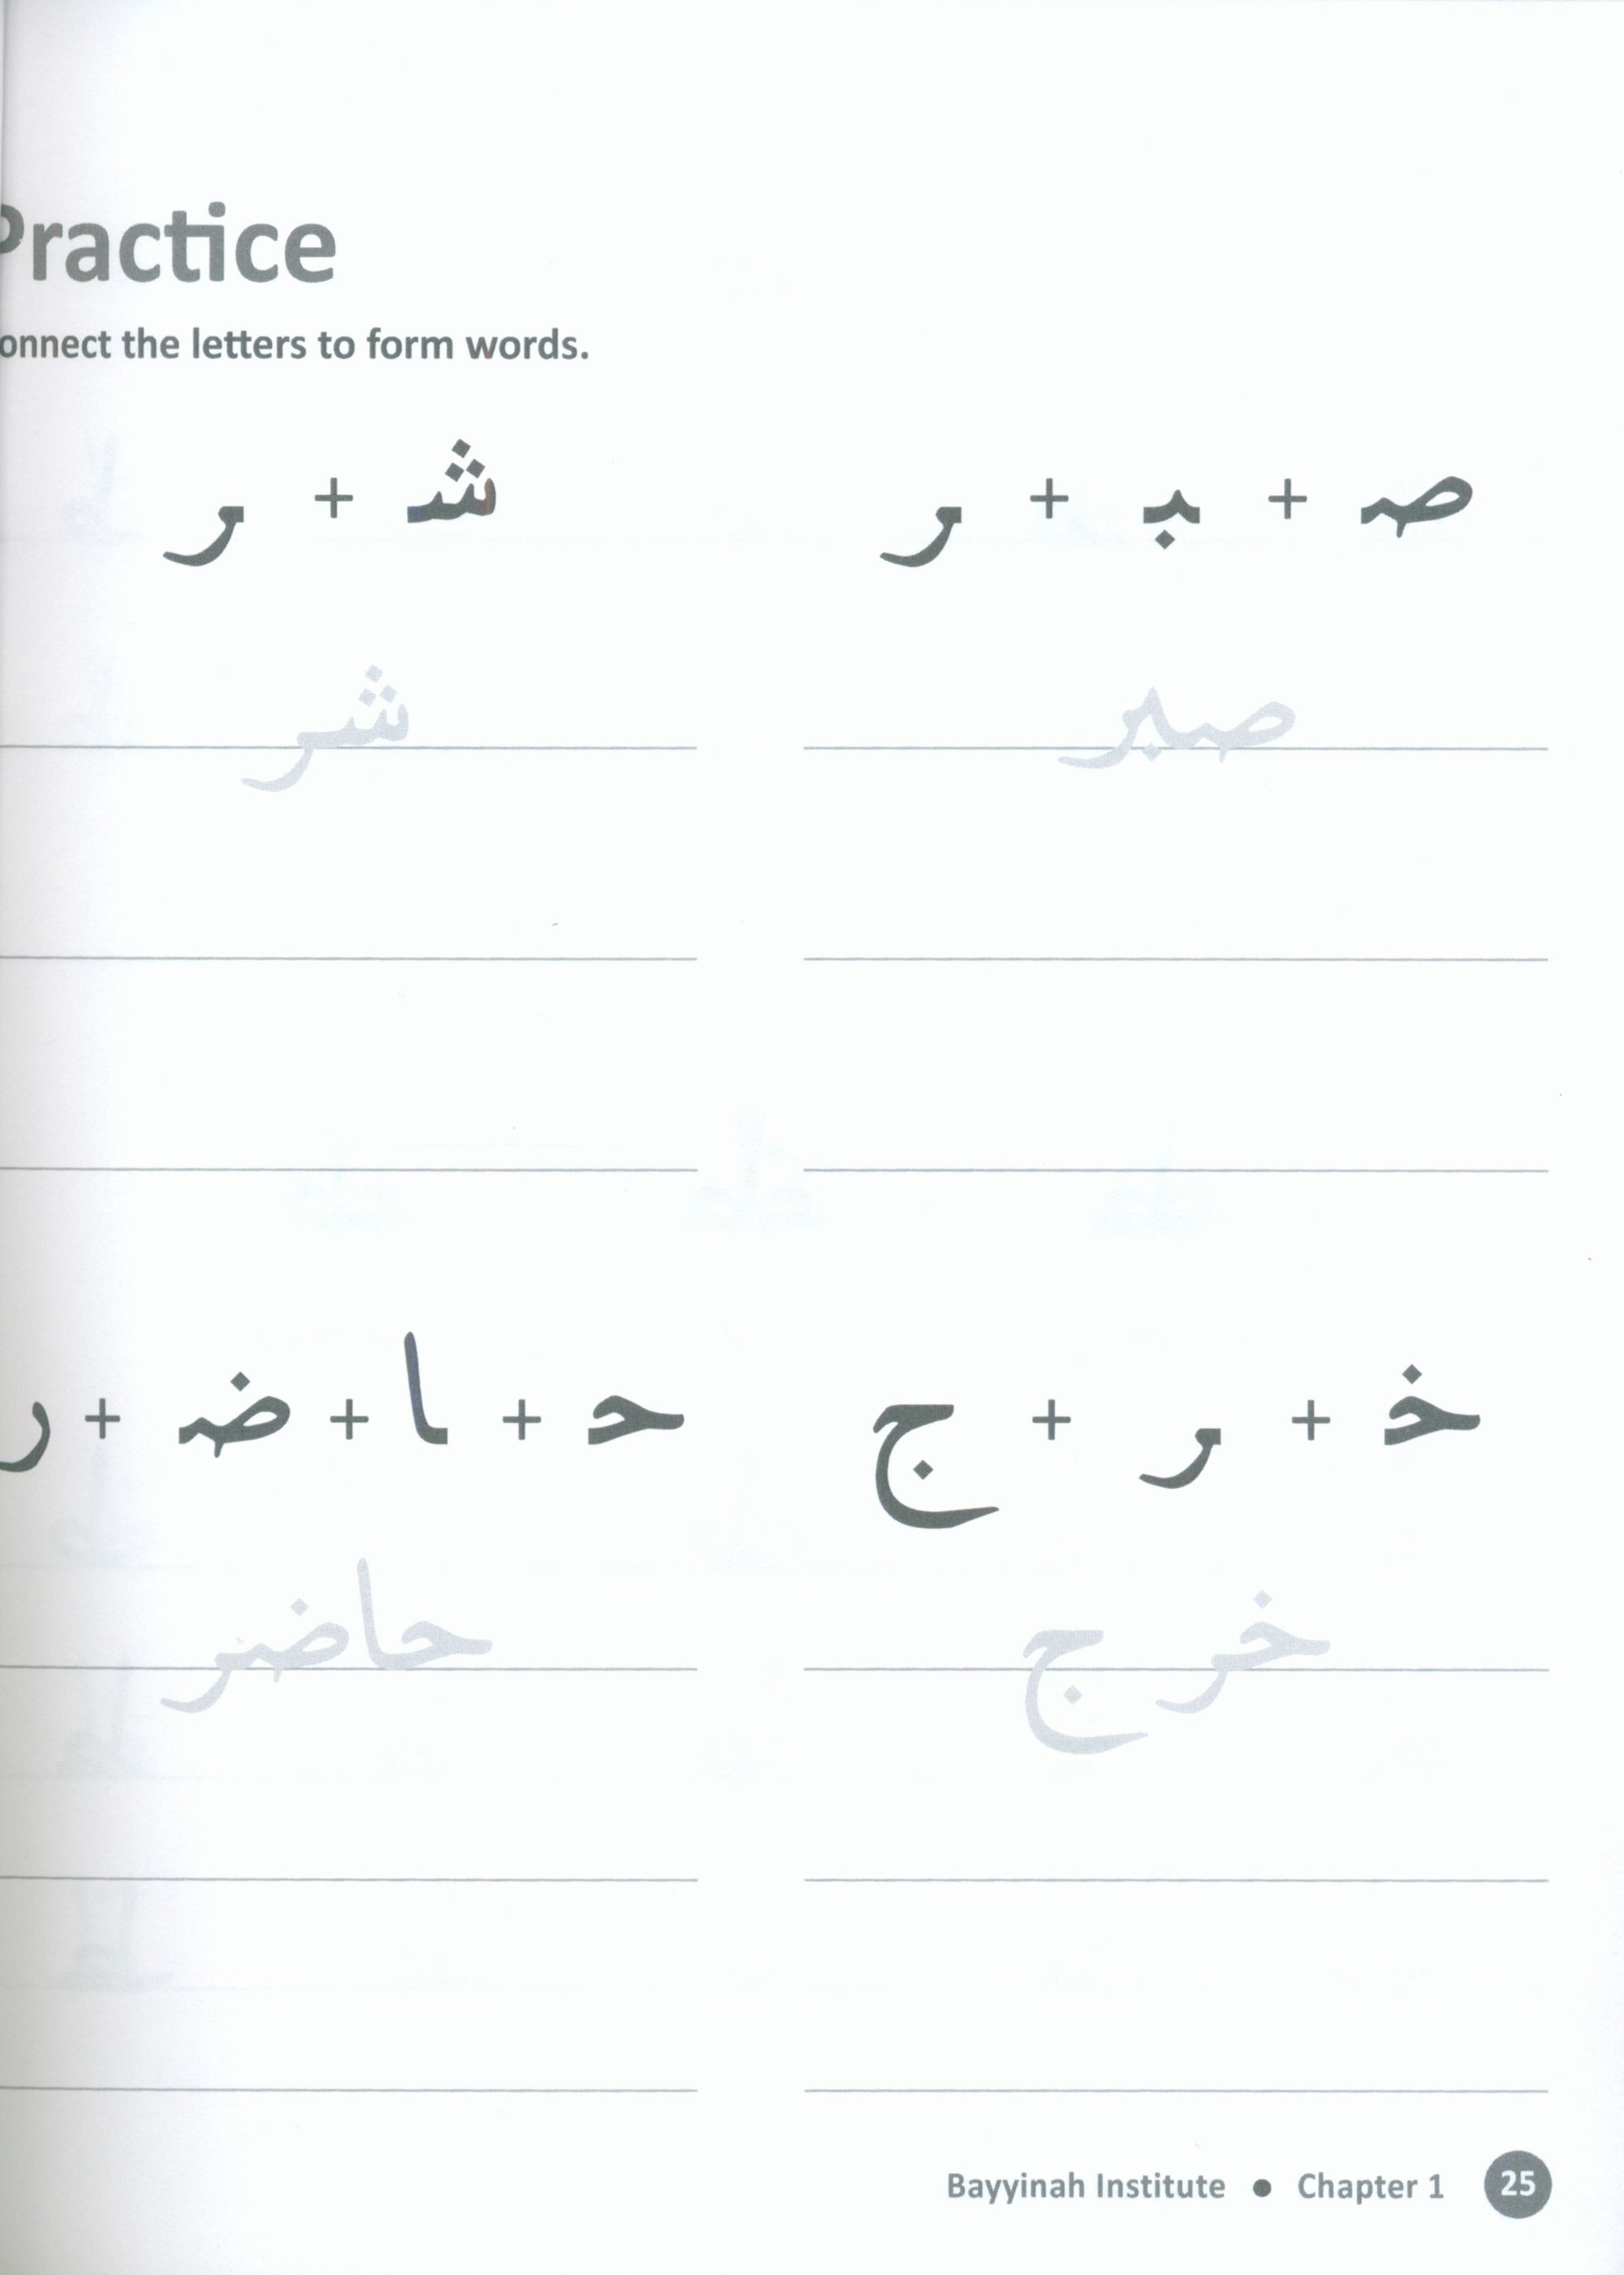 Practice
onnect the letters to form words.
صـ + ـبـ + ـر
شـ + ـر
صبر
شر
خـ + ـر + ج
حـ + ـا + ضـ + ر
خرج
حاضر
Bayyinah Institute • Chapter 1 25